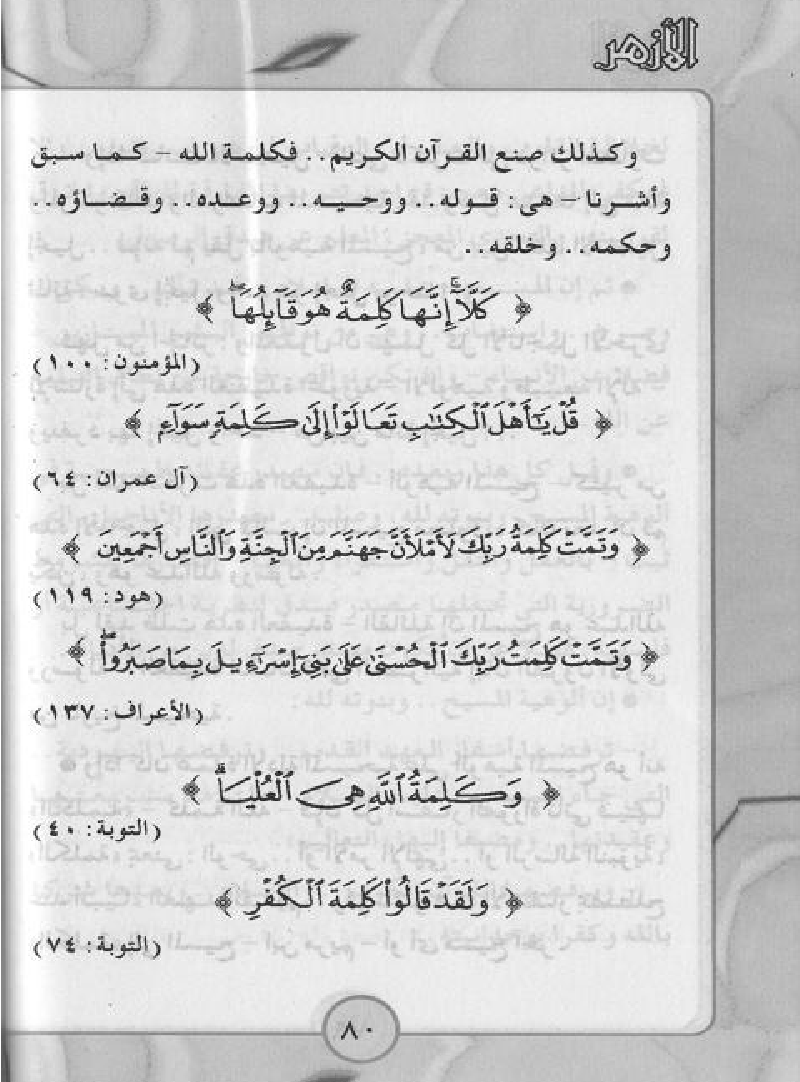 الأزهر
وكذلك صنع القرآن الكريم.. فكلمة الله - كما سبق
وأشرنا - هى: قوله.. ووحيه.. ووعده.. وقضاؤه..
وحكمه.. وخلقه..
﴿ كَلَّآ إِنَّهَا كَلِمَةٌ هُوَ قَآئِلُهَا ﴾
(المؤمنون: ١٠٠)
﴿ قُلْ يَٰٓأَهْلَ ٱلْكِتَٰبِ تَعَالَوْا۟ إِلَىٰ كَلِمَةٍ سَوَآءٍ ﴾
(آل عمران: ٦٤)
﴿ وَتَمَّتْ كَلِمَةُ رَبِّكَ لَأَمْلَأَنَّ جَهَنَّمَ مِنَ ٱلْجِنَّةِ وَٱلنَّاسِ أَجْمَعِينَ ﴾
(هود: ١١٩)
﴿ وَتَمَّتْ كَلِمَتُ رَبِّكَ ٱلْحُسْنَىٰ عَلَىٰ بَنِىٓ إِسْرَٰٓءِيلَ بِمَا صَبَرُوا۟ۖ ﴾
(الأعراف: ١٣٧)
﴿ وَكَلِمَةُ ٱللَّهِ هِىَ ٱلْعُلْيَاۗ ﴾
(التوبة: ٤٠)
﴿ وَلَقَدْ قَالُوا۟ كَلِمَةَ ٱلْكُفْرِ ﴾
(التوبة: ٧٤)
٨٠